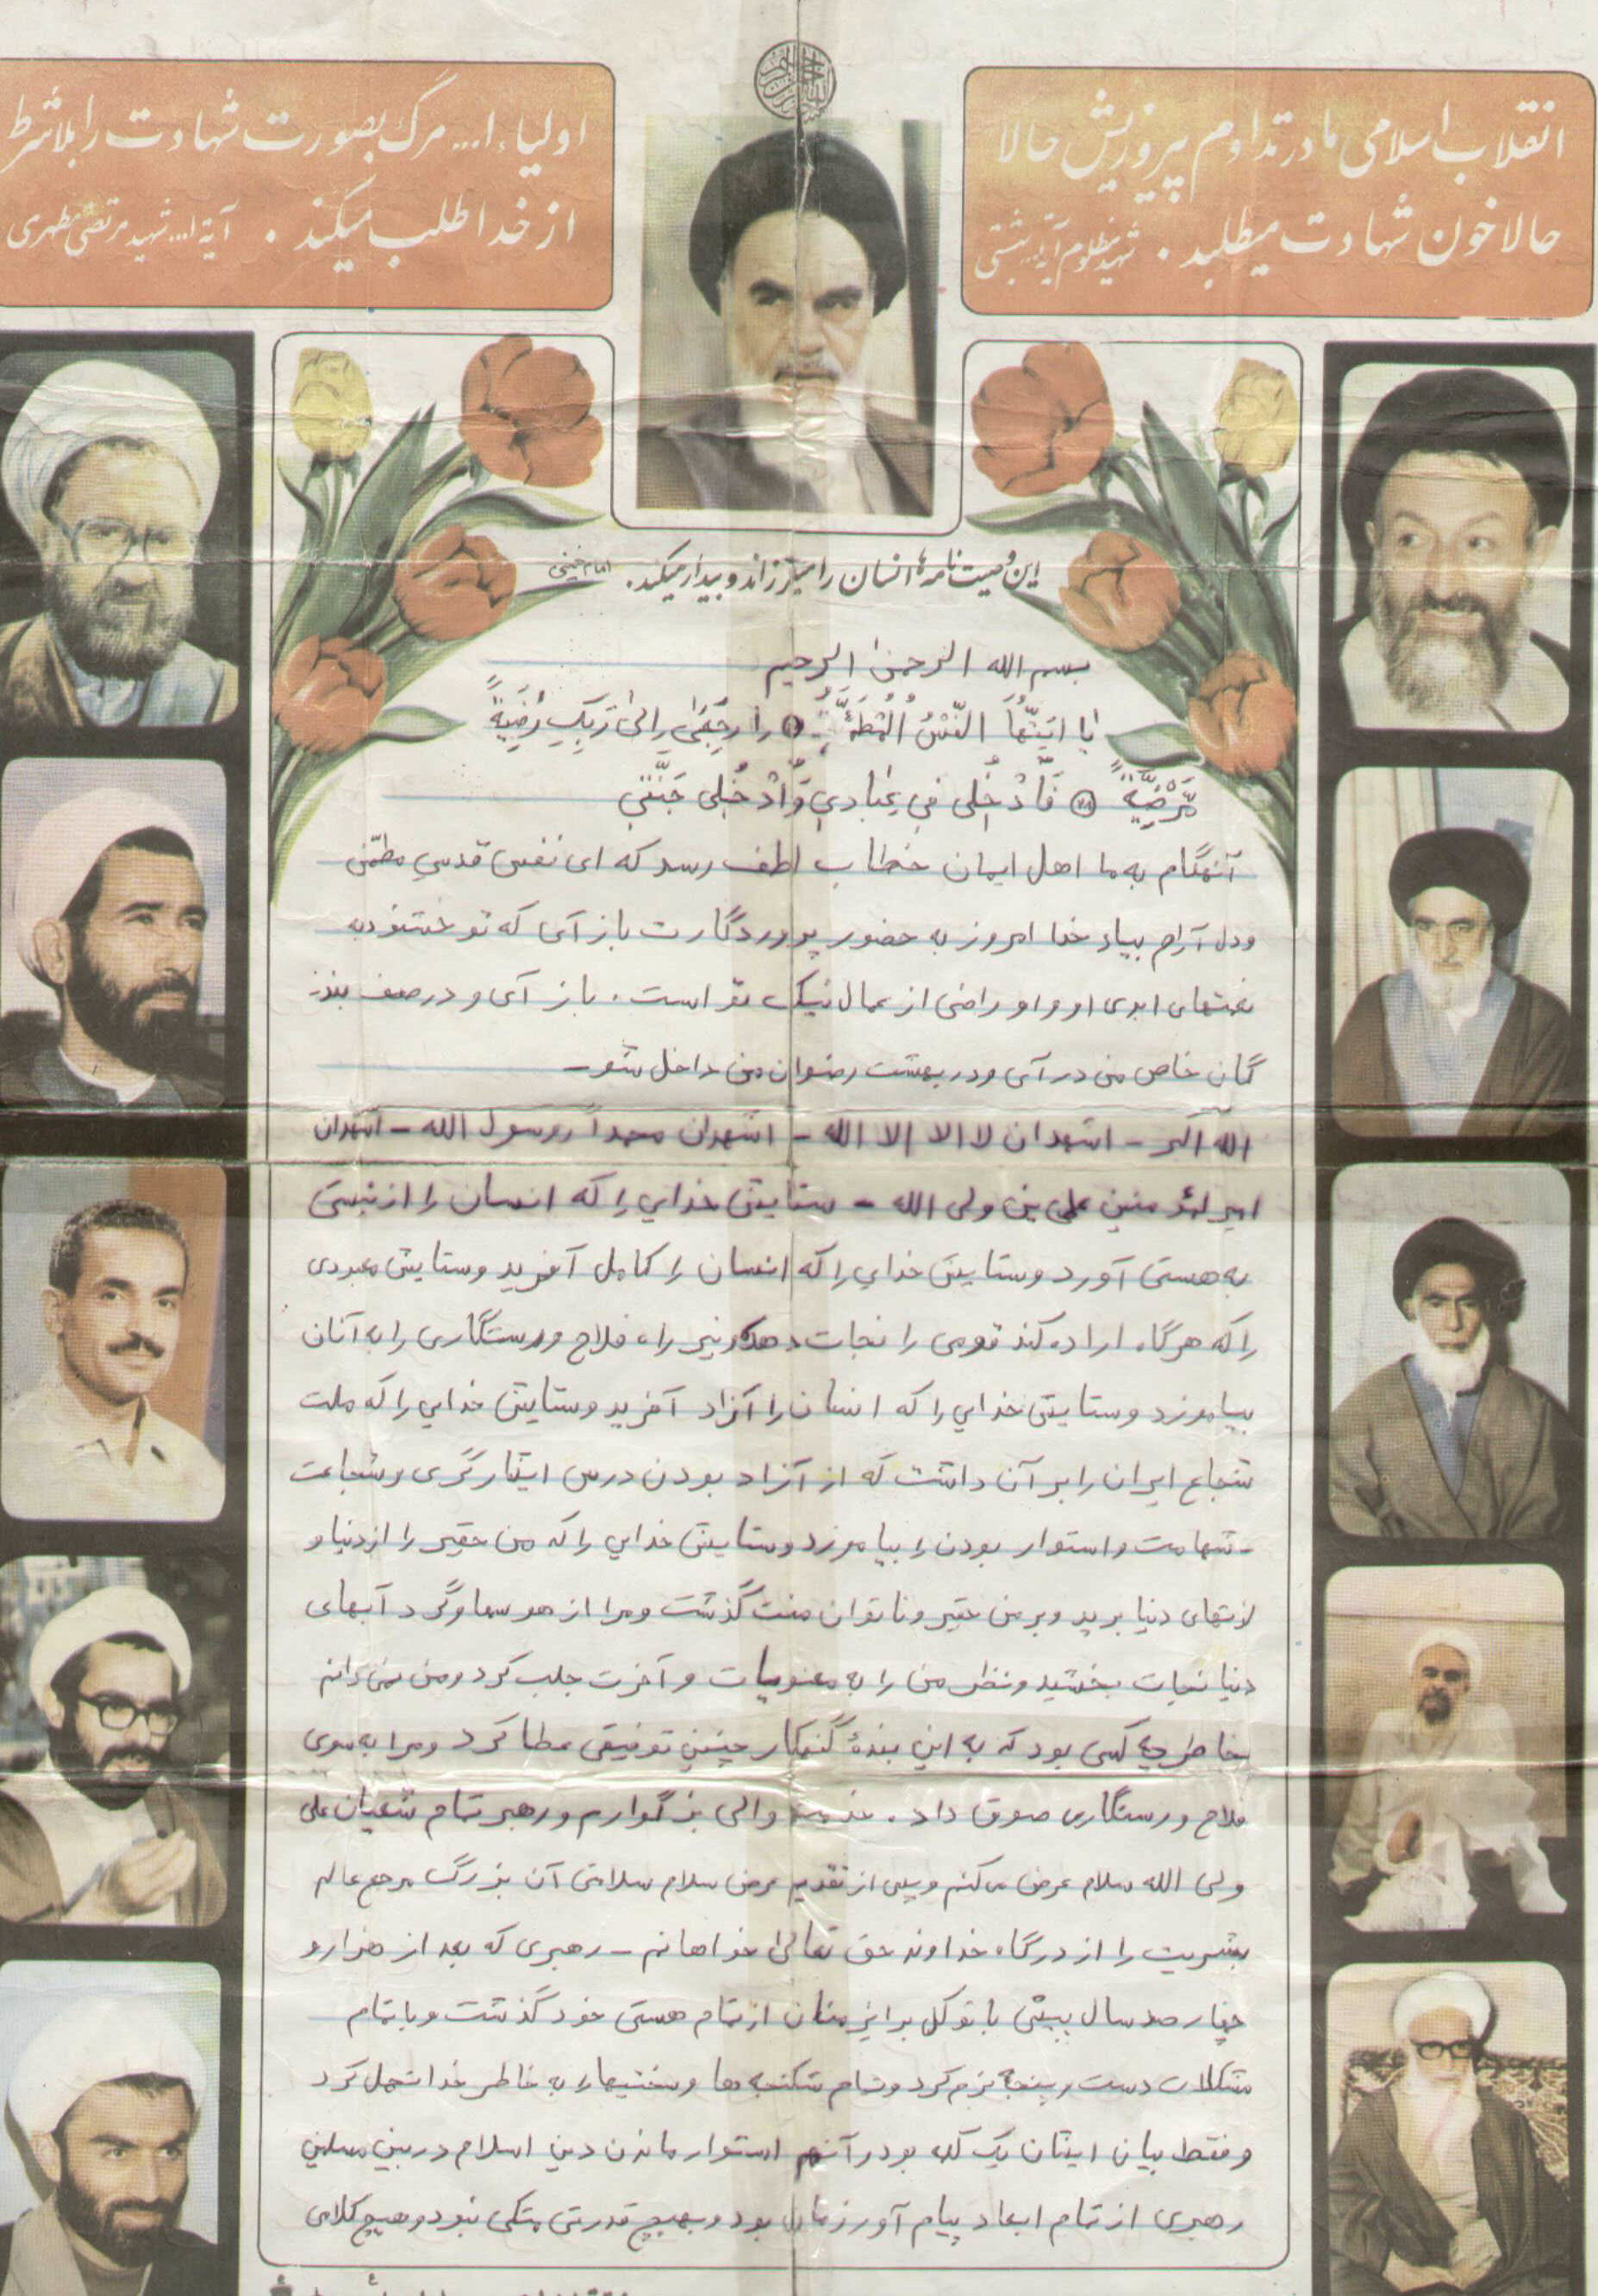 انقلاب اسلامی ما در تداوم پیروزیش حالا
حالا خون شهادت میطلبد. شهید مظلوم آیة... بهشتی
اولیاء ا... مرگ بصورت شهادت را بلاشرط
از خدا طلب میکند. آیة ا... شهید مرتضی مطهری
این وصیت نامه‌ها انسان را میلرزاند و بیدار میکند. امام خمینی
بسم الله الرحمن الرحیم
یا ایتها النفس المطمئنة ارجعی الی ربک راضیة
مرضیة فادخلی فی عبادی وادخلی جنتی
آنهگام به ما اهل ایمان خطاب لطف رسد که ای نفس قدسی مطمئن
و دل آرام بیاد خدا امروز به حضور پروردگارت باز آی که تو خشنود به
نعمتهای ابدی او و او راضی از عمال نیک تو است. باز آی و در صف بند
گان خاص من در آی و در بهشت رضوان من داخل شو –
الله اکبر – اشهد ان لا اله الا الله – اشهدان محمداً رسول الله – اشهدان
امیرلمؤمنین علی ین ولی الله – ستایش خدایی را که انسان را از نیستی
به هستی آورد و ستایش خدایی را که انسان را کامل آفرید و ستایش معبودی
را که هرگاه اراده کند قومی را نجات دهد نیز راه فلاح و رستگاری را به آنان
بیاموزد و ستایش خدایی را که انسان را آزاد آفرید و ستایش خدایی را که ملت
شجاع ایران را بر آن داشت که از آزاد بودن درس ایثارگری و شجاعت
– شهامت و استوار بودن را بیاموزد و ستایش خدایی را که من حقیر را از دنیا و
لذتهای دنیا برید و بر من حقیر و ناتوان منت گذشت و مرا از هوسها و گرد آبهای
دنیا نجات بخشید و نظر من را به معنویات و آخرت جلب کرد و من نمی‌دانم
بخاطر چه کسی بود که به این بندهٔ گنهکار چنین توفیقی عطا کرد و مرا به سوی
فلاح و رستگاری صوق داد. خدمت والی بزگوارم و رهبر تمام شعیان علی
ولی الله سلام عرض می‌کنم و پس از تقدیم عرض سلام سلامتی آن بزرگ مرجع عالم
بشریت را از درگاه خداوند حق تعالی خواهانم – رهبری که بعد از هزار و
چهارصد سال پیش با توکل بر ایزمنان از تمام هستی خود گذشت و با تمام
مشکلات دست و پنجه نرم کرد و تمام شکنجه‌ها و سختیها را به خاطر خدا تحمل کرد
و فقط بیان ایشان یک کلمه بود و آنهم استوار ماندن دین اسلام در بین مسلمین
رهبری از تمام ابعاد پیام آور زمان بود و بهیچ قدرتی متکی نبود و هیچ کلامی